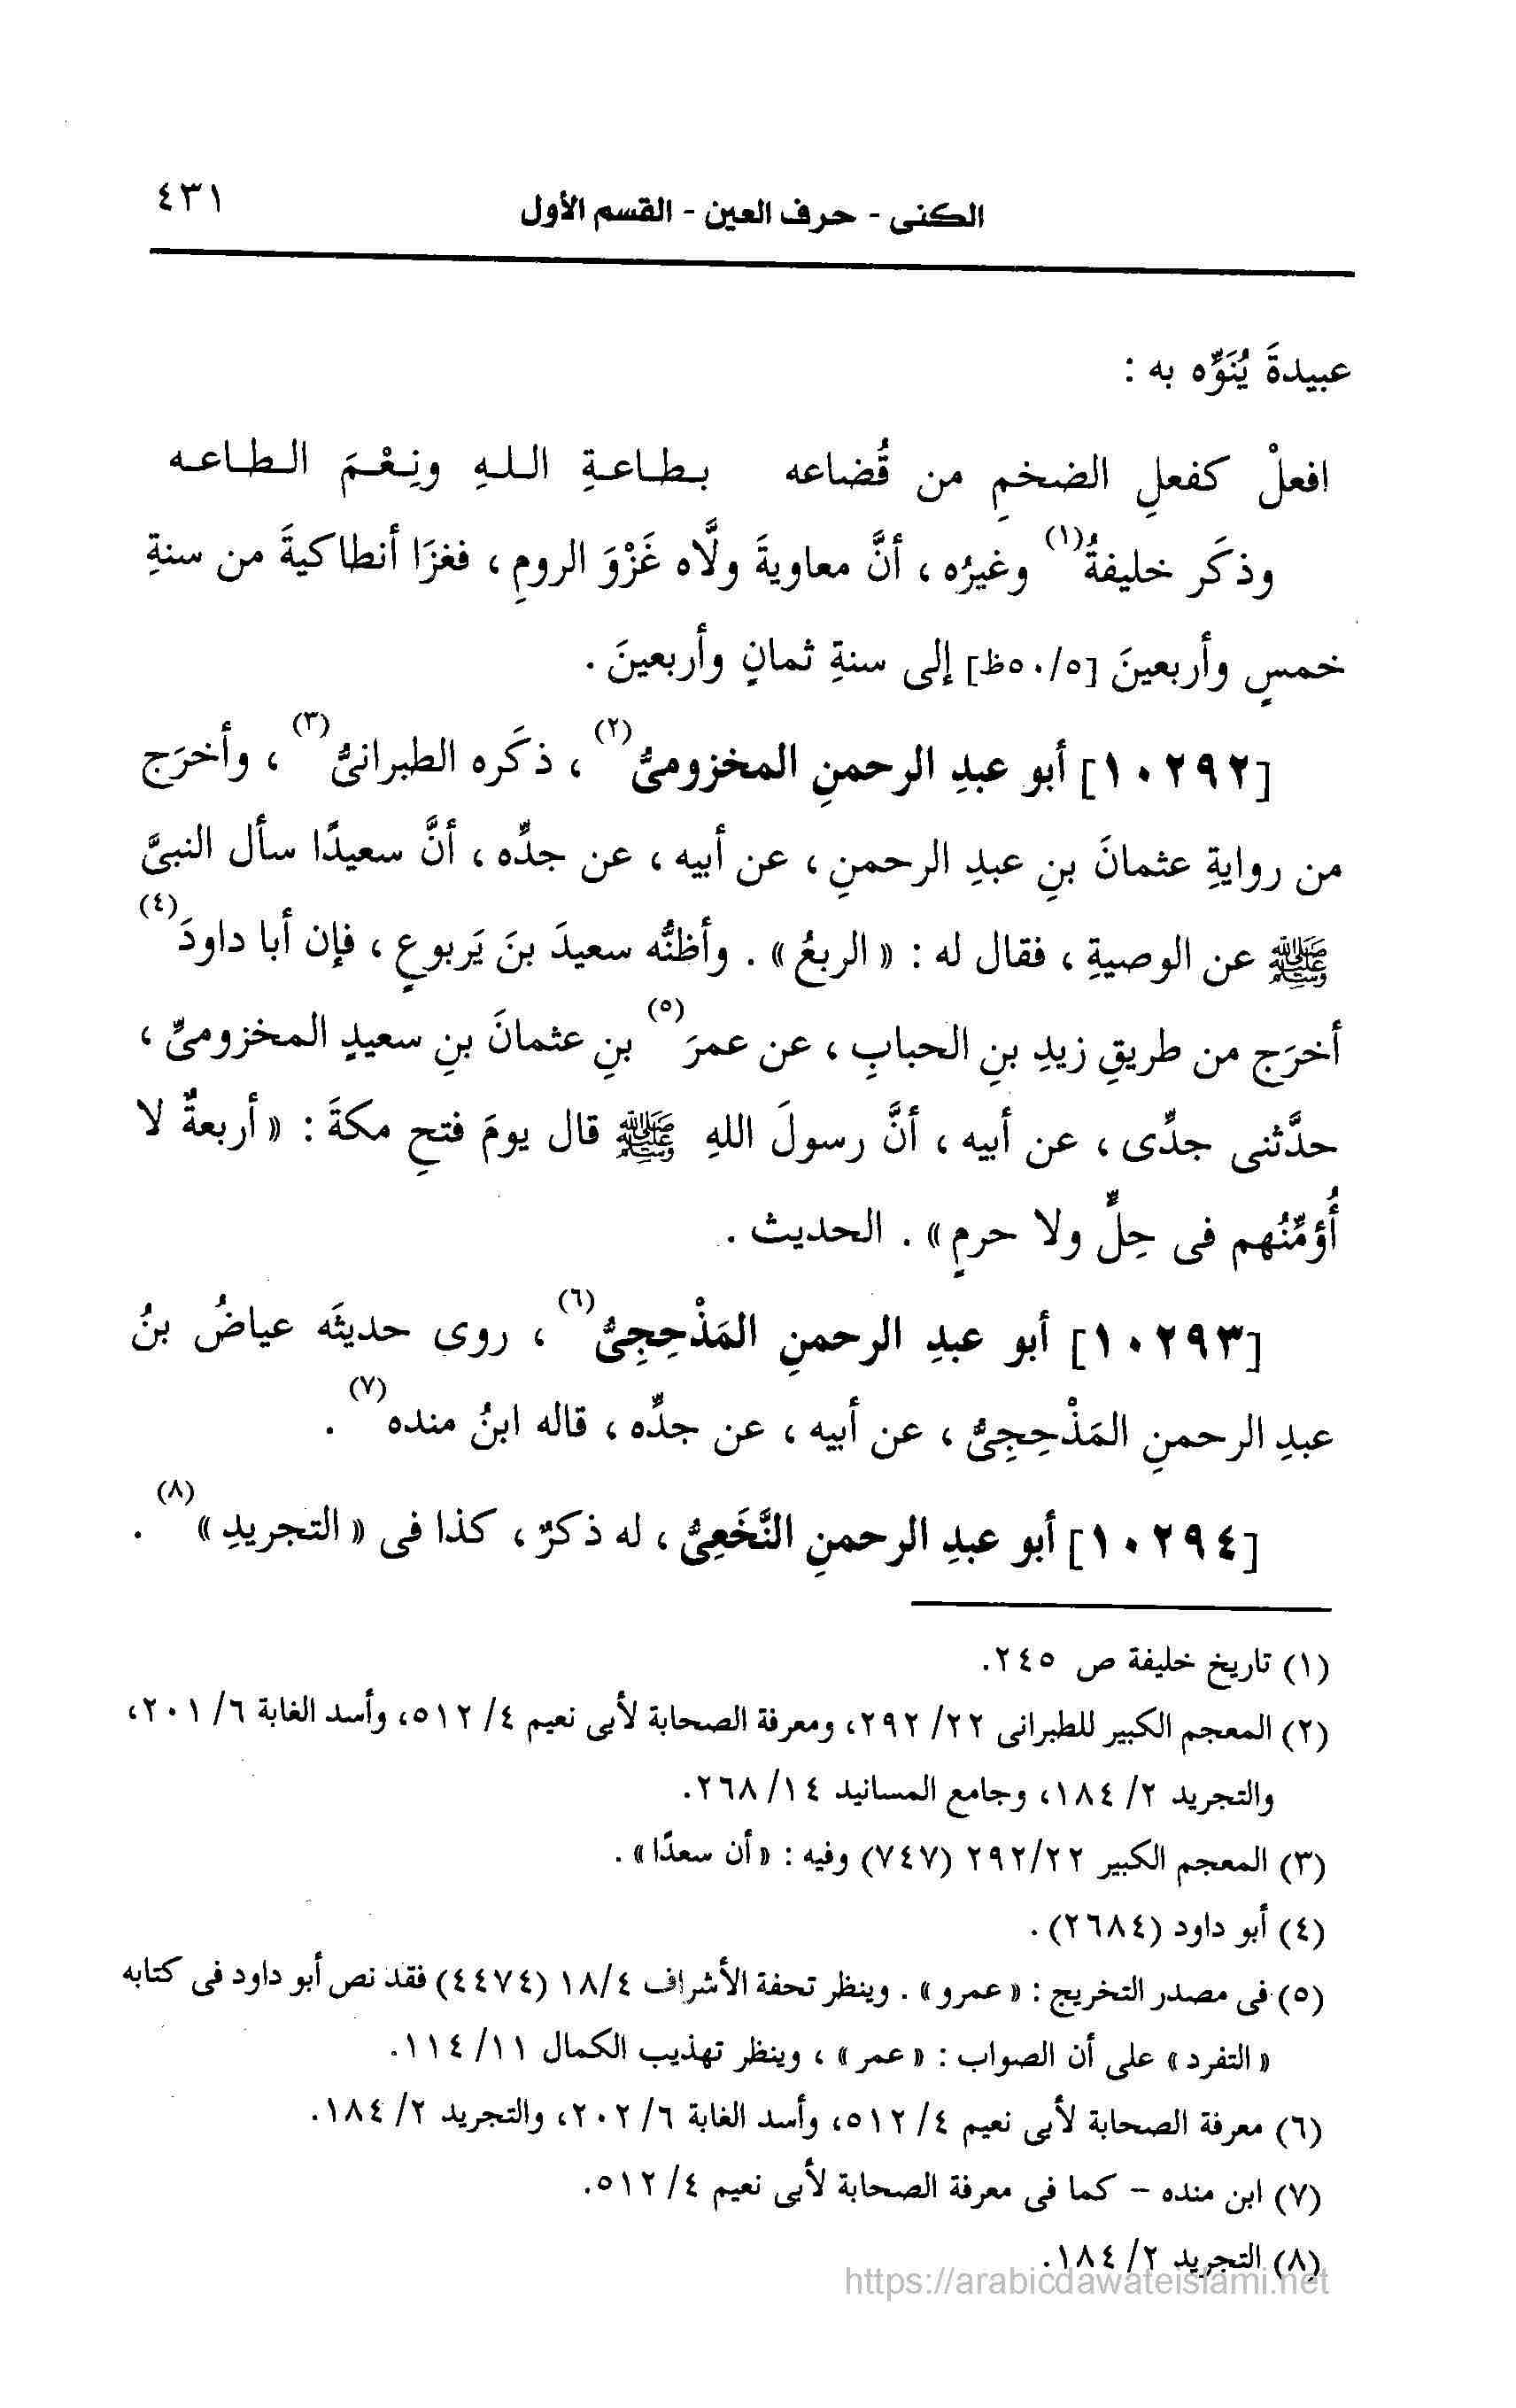 الكنى - حرف العين - القسم الأول ٤٣١
عبيدةَ يُنَوِّه به :
افعلْ كفعلِ الضخمِ من قُضاعه بطاعةِ اللهِ ونِعْمَ الطاعه
وذكَر خليفةُ(١) وغيرُه ، أنَّ معاويةَ ولَّاه غَزْوَ الرومِ ، فغزَا أنطاكيةَ من سنةِ
خمسٍ وأربعينَ [٥٠/٥ظ] إلى سنةِ ثمانٍ وأربعينَ .
[١٠٢٩٢] أبو عبدِ الرحمنِ المخزومىُّ(٢) ، ذكَره الطبرانىُّ(٣) ، وأخرَج
من روايةِ عثمانَ بنِ عبدِ الرحمنِ ، عن أبيه ، عن جدِّه ، أنَّ سعيدًا سأل النبىَّ
ﷺ عن الوصيةِ ، فقال له : « الربعُ » . وأظنُّه سعيدَ بنَ يَربوعٍ ، فإن أبا داودَ(٤)
أخرَج من طريقِ زيدِ بنِ الحبابِ ، عن عمرَ(٥) بنِ عثمانَ بنِ سعيدٍ المخزومىِّ ،
حدَّثنى جدِّى ، عن أبيه ، أنَّ رسولَ اللهِ ﷺ قال يومَ فتحِ مكةَ : « أربعةٌ لا
أُؤمِّنُهم فى حِلٍّ ولا حرمٍ » . الحديث .
[١٠٢٩٣] أبو عبدِ الرحمنِ المَذْحِجِىُّ(٦) ، روى حديثَه عياضُ بنُ
عبدِ الرحمنِ المَذْحِجِىُّ ، عن أبيه ، عن جدِّه ، قاله ابنُ منده(٧) .
[١٠٢٩٤] أبو عبدِ الرحمنِ النَّخَعِىُّ ، له ذكرٌ ، كذا فى « التجريدِ »(٨) .
(١) تاريخ خليفة ص ٢٤٥.
(٢) المعجم الكبير للطبرانى ٢٢/ ٢٩٢، ومعرفة الصحابة لأبى نعيم ٤/ ٥١٢، وأسد الغابة ٦/ ٢٠١،
والتجريد ٢/ ١٨٤، وجامع المسانيد ١٤/ ٢٦٨.
(٣) المعجم الكبير ٢٩٢/٢٢ (٧٤٧) وفيه : « أن سعدًا » .
(٤) أبو داود (٢٦٨٤) .
(٥) فى مصدر التخريج : « عمرو » . وينظر تحفة الأشراف ١٨/٤ (٤٤٧٤) فقد نص أبو داود فى كتابه
« التفرد » على أن الصواب : « عمر » ، وينظر تهذيب الكمال ١١/ ١١٤.
(٦) معرفة الصحابة لأبى نعيم ٤/ ٥١٢، وأسد الغابة ٦/ ٢٠٢، والتجريد ٢/ ١٨٤.
(٧) ابن منده - كما فى معرفة الصحابة لأبى نعيم ٤/ ٥١٢.
(٨) التجريد ٢/ ١٨٤.
https://arabicdawateislami.net